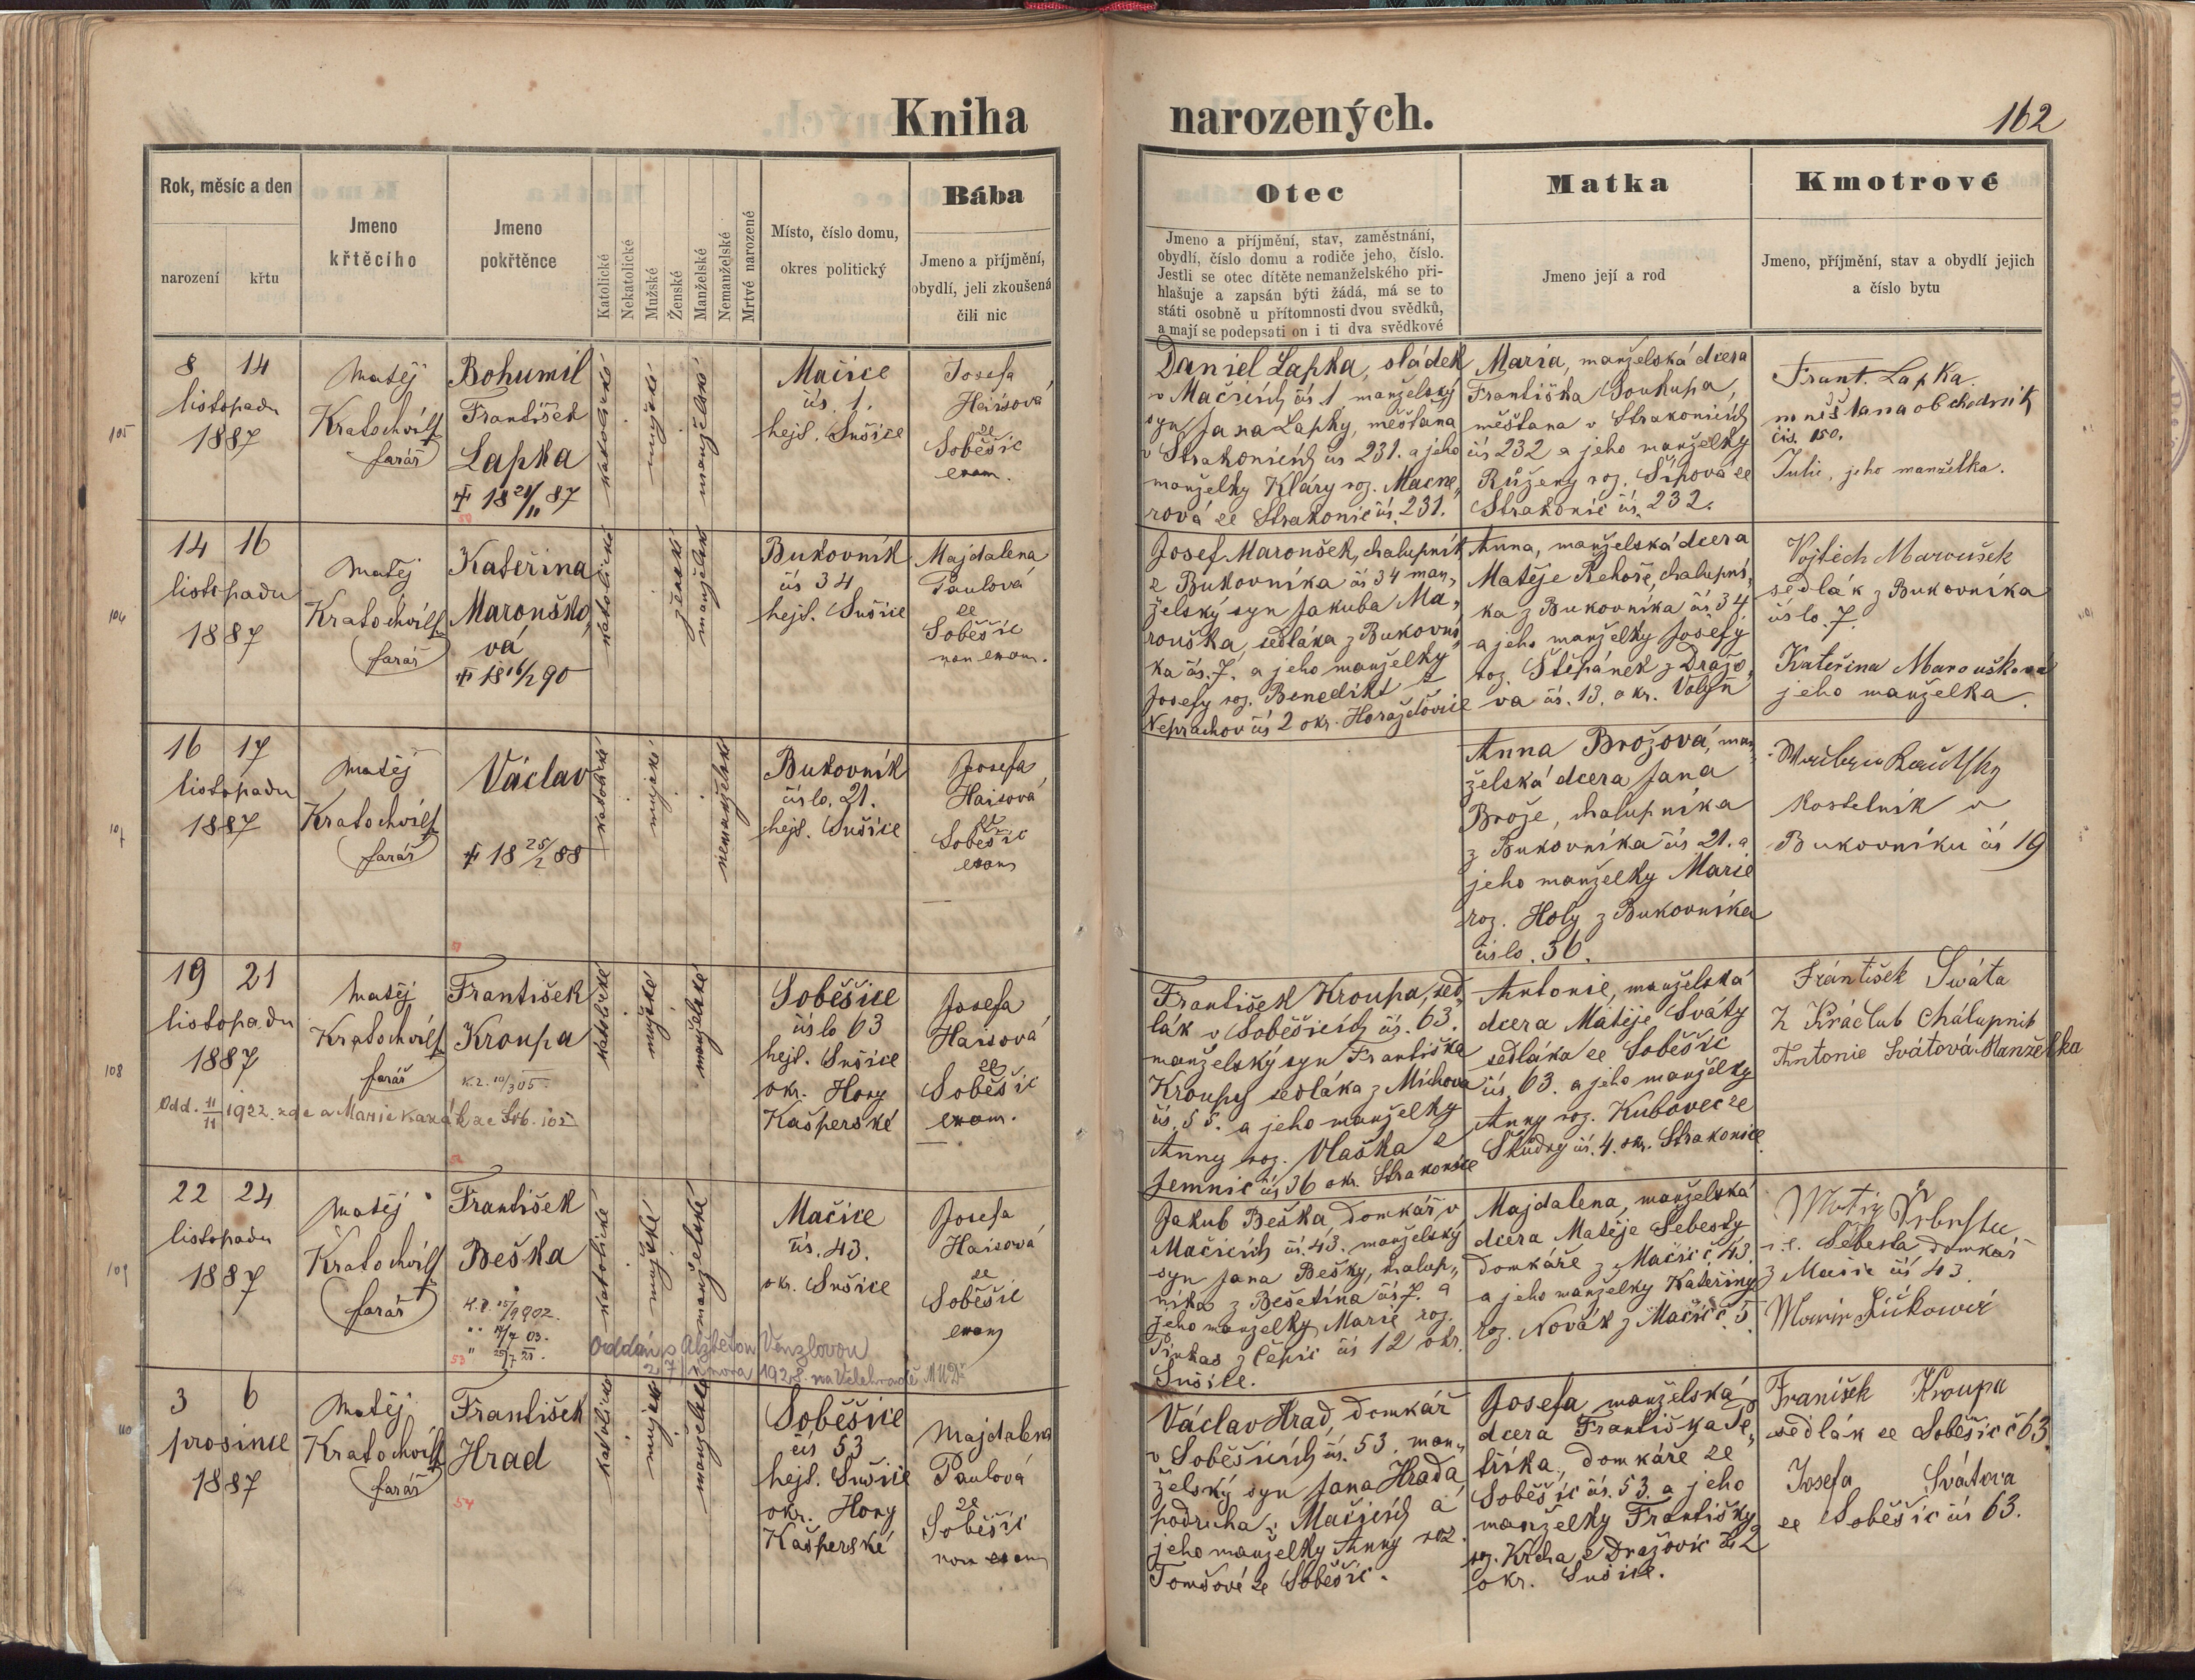 Kniha
narozených.
162
Rok, měsíc a den
narození
křtu
Jmeno
křtěcího
Jmeno
pokřtěnce
Katolické
Nekatolické
Mužské
Ženské
Manželské
Nemanželské
Mrtvé narozené
Místo, číslo domu,
okres politický
Bába
Jmeno a příjmění,
obydlí, jeli zkoušená
čili nic
Otec
Jmeno a příjmění, stav, zaměstnání,
obydlí, číslo domu a rodiče jeho, číslo.
Jestli se otec dítěte nemanželského při-
hlašuje a zapsán býti žádá, má se to
státi osobně u přítomnosti dvou svědků,
a mají se podepsati on i ti dva svědkové
Matka
Jmeno její a rod
Kmotrové
Jmeno, příjmění, stav a obydlí jejich
a číslo bytu
105
8 14
listopadu
1887
Matěj
Kratochvíl
farář
Bohumil
František
Lapka
katolické
mužské
manželské
Mačice
čís. 1.
hejt. Sušice
Josefa
Haisová
ze
Soběšic
exam.
Daniel Lapka, sládek
v Mačicích čís 1 manželský
syn Jana Lapky, měšťana
v Strakonicích čís 231. a jeho
manželky Kláry roz.
rová ze Strakonic čís. 231.
Maria, manželská dcera
Františka Soukupa,
měšťana v Strakonicích
čís 232 a jeho manželky
Růženy roz. Šípová ze
Strakonic čís. 232.
Frant. Lapka
obchodník
čís. 150.
Julie, jeho manželka.
106
14 16
listopadu
1887
Matěj
Kratochvíl
farář
Kateřina
Marouško,
vá
18 16/2 90
katolické
ženské
manželské
Bukovník
čís 34
hejt. Sušice
Majdalena
Paulová
ze
Soběšic
non exam.
Josef Maroušek, chalupník
z Bukovníka čís 34 man,
želský syn Jakuba Ma,
rouška, sedláka z Bukovní,
ka čís. 7. a jeho manželky
Josefy roz. Benedikt z
Neprachov čís 2 okr. Horažďovice
Anna, manželská dcera
Matěje Řehoře, chalupní,
ka z Bukovníka čís. 34
a jeho manželky Josefy
roz. Štěpánek z Dražo,
va čís. 13. okr. Volyň
Vojtěch Maroušek
sedlák z Bukovníka
číslo. 7.
Kateřina Maroušková
jeho manželka.
107
16 17
listopadu
1887
Matěj
Kratochvíl
farář
Václav
18 25/2 88
katolické
mužské
nemanželské
Bukovník
číslo. 21.
hejt. Sušice
Josefa
Haisová
ze
Soběšic
exam
Anna Brožová, man,
želská dcera Jana
Brože, chalupníka
z Bukovníka čís 21. a
jeho manželky Marie
roz. Holy z Bukovníka
číslo. 36.
kostelník v
Bukovníku čís 19
108
19 21
listopadu
1887
Matěj
Kratochvíl
farář
František
Kroupa
K.L. 10/3 05.
Odd. 11/11 1922 zde a Marie Kazák ze Sob. 105
katolické
mužské
manželské
Soběšice
číslo 63
hejt. Sušice
okr. Hory
Kašperské
Josefa
Haisová
ze
Soběšic
exam.
František Kroupa, sed,
lák v Soběšicích čís. 63.
manželský syn Františka
Kroupy sedláka z Míchova
čís. 55. a jeho manželky
Anny roz. Vlaška z
Jemnic čís 36 okr. Strakonice
Antonie, manželská
dcera Matěje Sváty
sedláka ze Soběšic
čís. 63. a jeho manželky
Anny roz. Kubovec ze
Škůdry čís. 4. okr. Strakonice
František Swáta
Z Kráčlub Chálupnik
Antonie Svátová Manželka
109
22 24
listopadu
1887
Matěj
Kratochvíl
farář
František
Beška
53
katolické
mužské
manželské
Oddán s Alžbětou Venzlovou
27 února 1928. na Velehradě
Mačice
čís. 43.
okr. Sušice
Josefa
Haisová
ze
Soběšic
exam
Jakub Beška, domkář v
Mačicích čís. 43. manželský
syn Jana Bešky, chalup,
níka z Bešetína čís 7. a
jeho manželky Marie roz.
Pinkas z Čepic čís 12 okr.
Sušice.
Majdalena, manželská
dcera Matěje Šebesty
domkáře z Mačic č. 43
a jeho manželky Kateřiny
roz. Novák z Mačic č. 5
i.e. Šebesta domkář
z Mačic čís 43.
110
3 6
prosince
1887
Matěj
Kratochvíl
farář
František
Hrad
54
katolické
mužské
manželské
Soběšice
čís 53
hejt. Sušice
okr. Hory
Kašperské
Majdalena
Paulová
ze
Soběšic
non exam
Václav Hrad, domkář
v Soběšicích čís. 53. man,
želský syn Jana Hrada
podruha v Mačicích a
jeho manželky Anny roz.
Tomšové ze Soběšic.
Josefa manželská
dcera Františka Pe,
tříka, domkáře ze
Soběšic čís. 53. a jeho
manželky Františky
roz. Krcha z Dražovic čís 2
okr. Sušice.
Franišek Kroupa
sedlák ze Soběšic č 63.
Josefa Svátova
ze Soběšic čís 63.